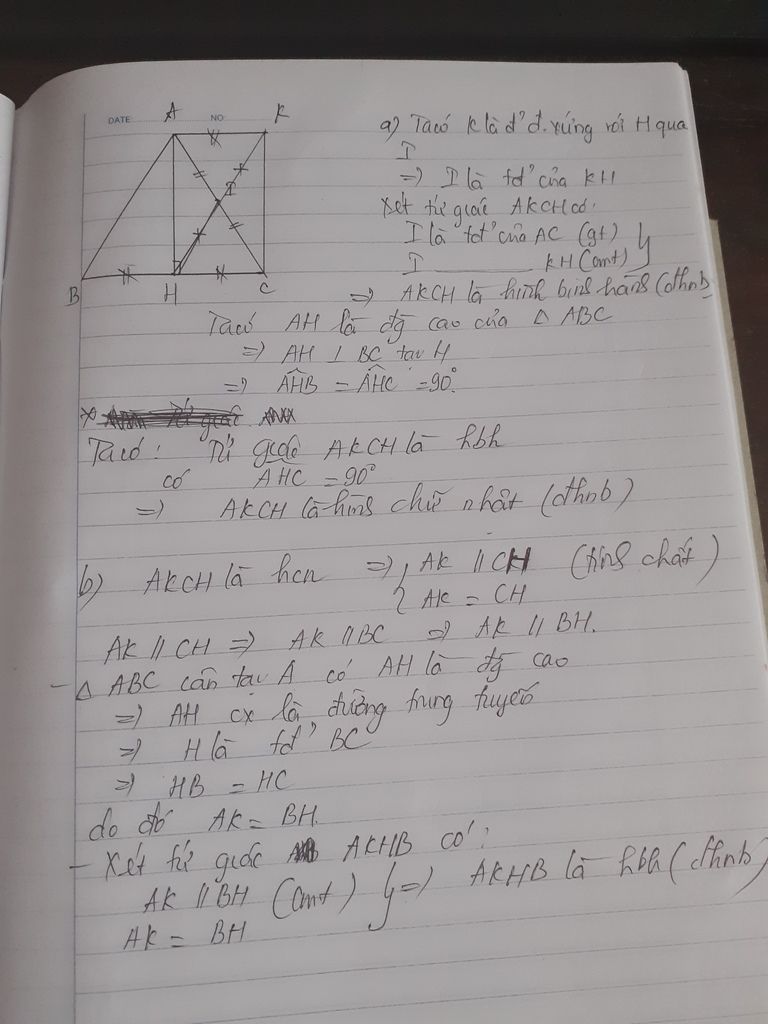 DATE NO
A K
I
B H C
a) Ta có K là đ' đ.xứng với H qua
I
=> I là tđ' của KH
Xét tứ giác AKCH có:
I là tđ' của AC (gt) }
I ________ KH (cmt)
=> AKCH là hình bình hành (dhnb)
Ta có AH là đg cao của Δ ABC
=> AH ⊥ BC tại H
=> AHB = AHC = 90°
Ta có: Tứ giác AKCH là hbh
có AHC = 90°
=> AKCH là hình chữ nhật (dhnb)
b) AKCH là hcn => { AK // CH (tính chất)
AK = CH
AK // CH => AK // BC => AK // BH.
- Δ ABC cân tại A có AH là đg cao
=> AH cx là đường trung tuyến
=> H là tđ' BC
=> HB = HC
do đó AK = BH
- Xét tứ giác AKHB có:
AK // BH (cmt) } => AKHB là hbh (dhnb)
AK = BH